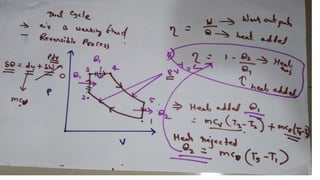 Dual Cycle
→ air is working fluid
→ Reversible Process
δQ = dU + δW
Pdv
mCv
P
V
Q1
Q1
3
4
2
5
1
Q2
η = W → Work output
Q → heat added
η = 1 - Q2 → Heat Rej
Q1
heat added
⇒ Heat added Q1
= mCv (T3-T2) + mCp(T4-T3)
Heat rejected
Q2 = mCv (T5-T1)